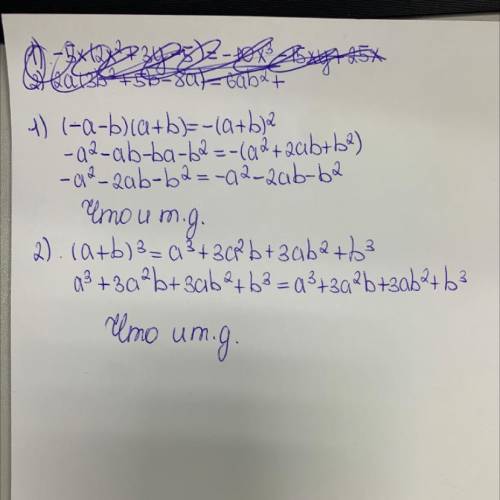 1) (-a-b)(a+b)=-(a+b)²
-a²-ab-ba-b²=-(a²+2ab+b²)
-a²-2ab-b²=-a²-2ab-b²
Что и т.д.
2). (a+b)³=a³+3a²b+3ab²+b³
a³+3a²b+3ab²+b³=a³+3a²b+3ab²+b³
Что и т.д.